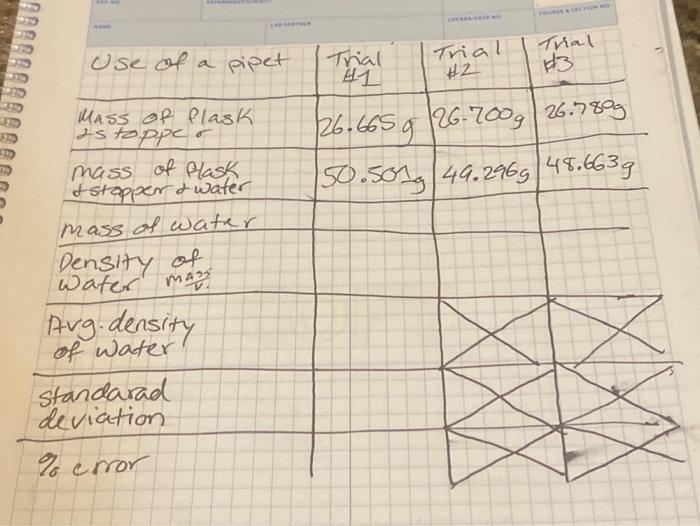 EXP NO.
EXPERIMENT/SUBJECT
NAME
LAB PARTNER
LOCKER/DESK NO.
COURSE & SECTION NO.
Use of a pipet
Trial #1
Trial #2
Trial #3
Mass of flask
& stopper
26.665g
26.700g
26.789g
mass of flask
& stopperr & water
50.501g
49.296g
48.663g
mass of water
Density of
water mass/v.
Avg. density
of water
standarad
deviation
% error